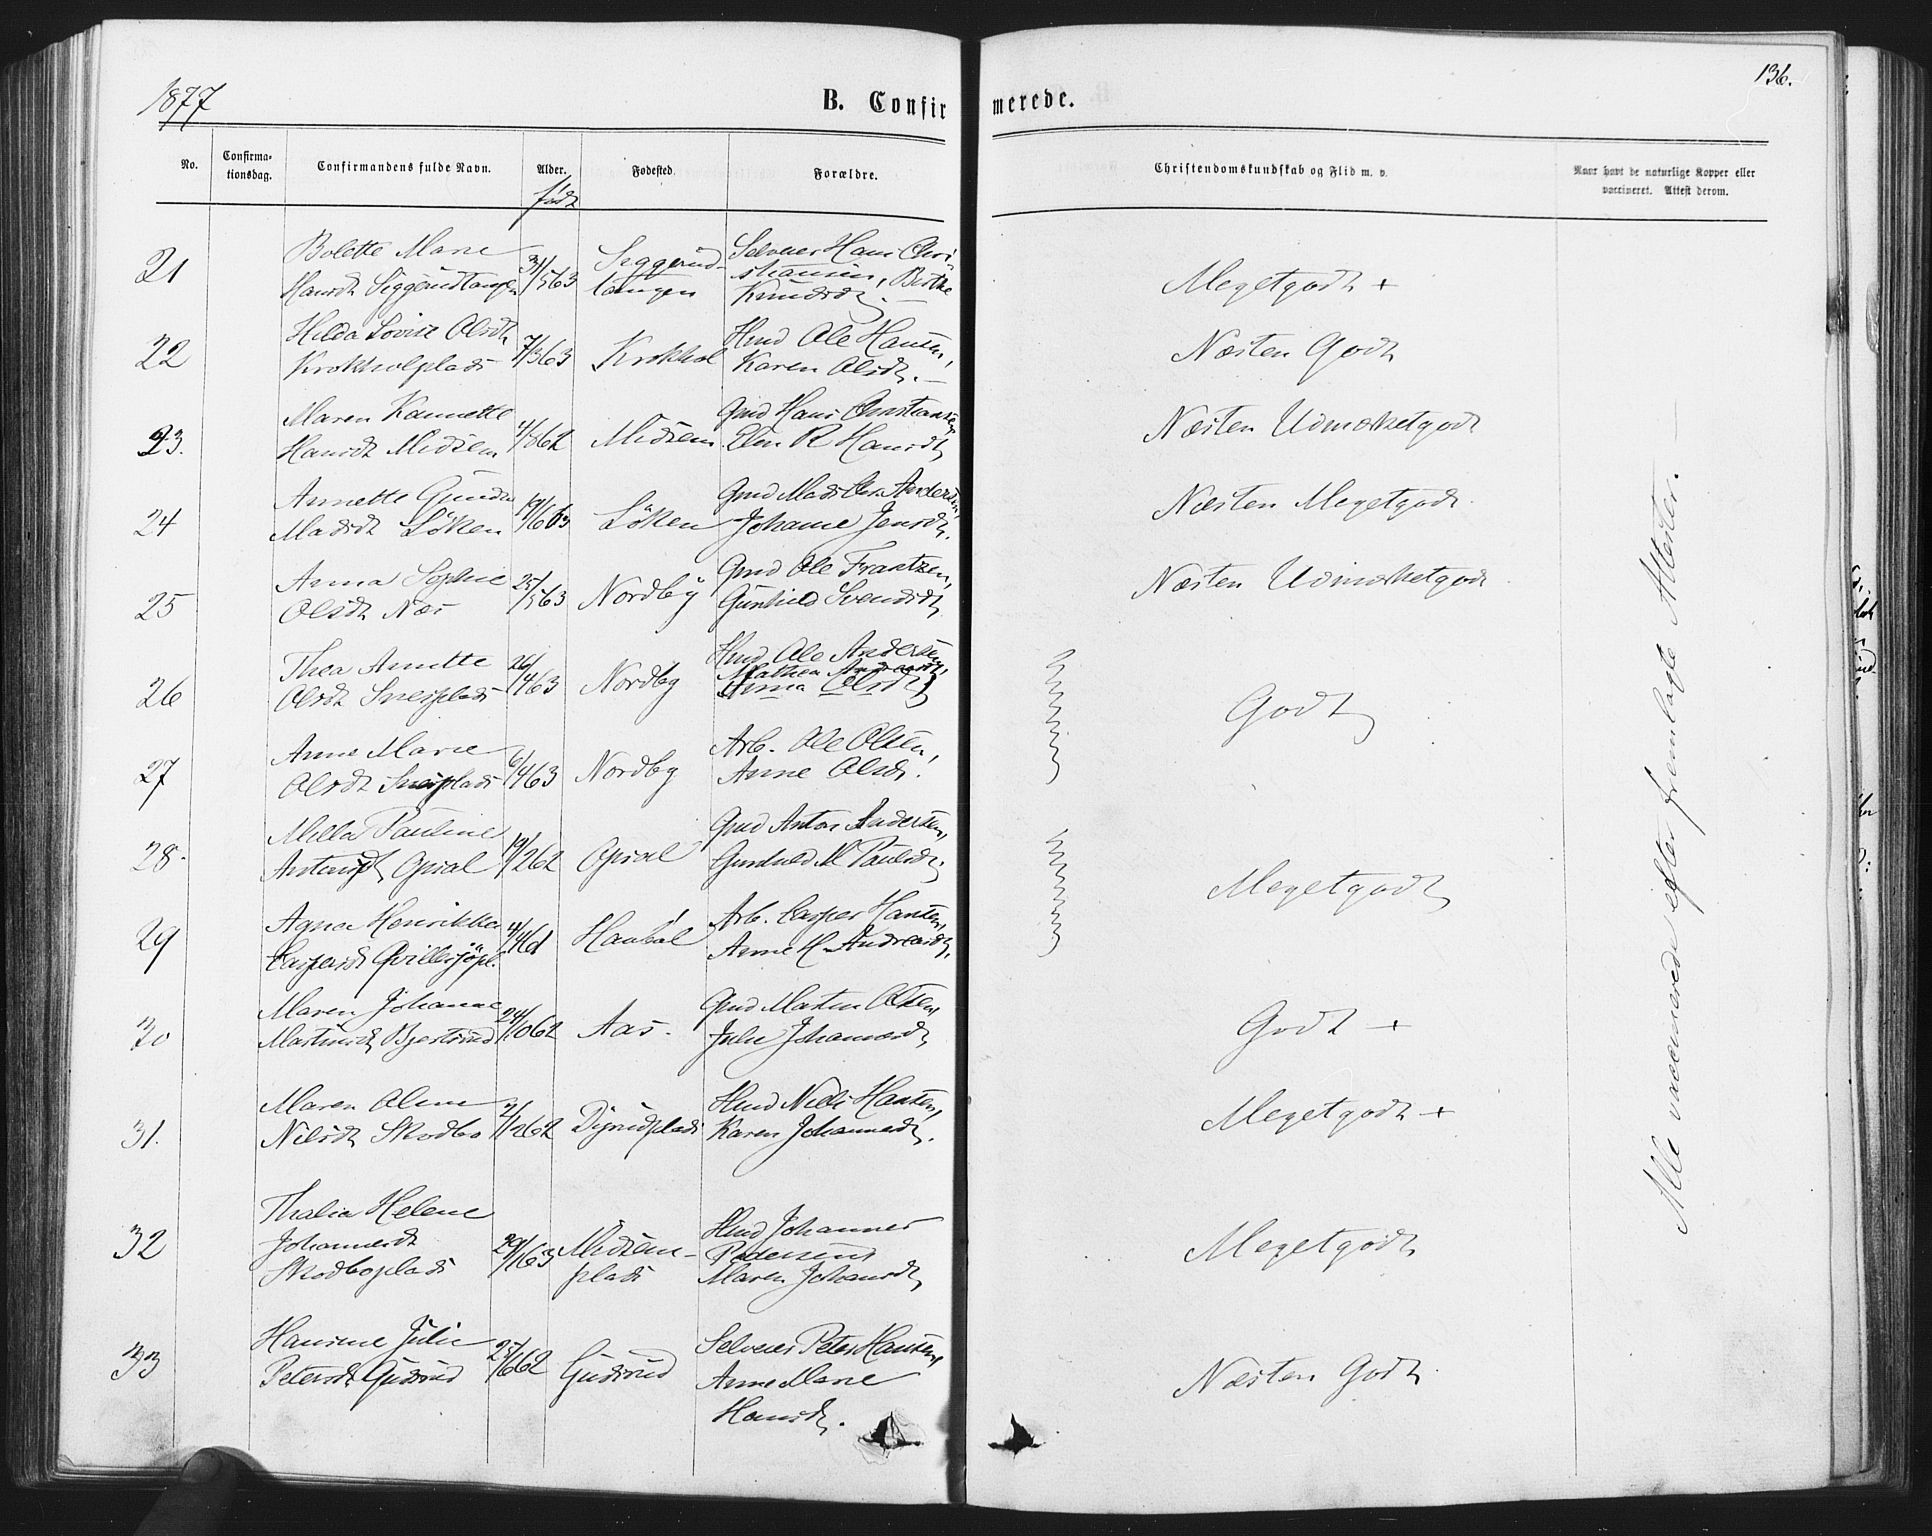 1877
B. Confir
merede.
136.
No.
Confirma-
tionsdag.
Confirmandens fulde Navn.
Alder.
født
Fødested.
Forældre.
Christendomskundskab og Flid m. v.
Naar havt de naturlige Kopper eller
vaccineret. Attest derom.
21
Bolette Marie
Hansdt Siggerudtangen
31/5 63
Siggerud-
tangen
Selveier Hans Chri-
stiansen, Birthe
Knudsdt.
Megetgodt +
22
Hilda Lovise Olsdt
Krokholplads
7/3 63
Krokhol
Hmd Ole Hansen,
Karen Olsdt.
Næsten Godt
23.
Maren Hannette
Hansdt Midsem
62
Midsem
Gmd Hans Christiansen
Elen R Hansdt
Næsten Udmærketgodt
24
Annette Gunda
Madsdt Löken
19/6 63
Löken
Gmd Mads Chr. Andersen,
Johanne Jensdt.
Næsten Megetgodt.
25
Anna Sophie
Olsdt Næs
25/5 63
Nordby
Gmd Ole Frantzen,
Gunhild Svendsdt
Næsten Udmærketgodt
26
Thea Annette
Olsdt Sneisplads
26/4 63
Nordby
Hmd Ole Andersen,
Mathea Andreasdt,
Anna Olsdt
Godt
27
Anne Marie
Olsdt Sneisplads
6/4 63
Nordby
Arb. Ole Olsen,
Anne Olsdt.
28.
Milla Pauline
Antonsdt Opsal
19/2 62
Opsal
Gmd Anton Andersen,
Gunhild M Paulsdt.
Megetgodt
29
Agnes Henrikke
Caspersdt Qvillesjöpl.
Haubøl
Arb. Casper Hansen,
Anne H. Andreasdt.
30
Maren Johanne
Martinsdt Bjerkerud
24/10 62
Aas.
Gmd Martin Olsen,
Julie Johannesdt
Godt +
31.
Maren Oline
Nilsdt Skodbo
2/12 62
Dyrudplads
Hmd Nils Hansen,
Karen Johannesdt.
Megetgodt +
32
Thalia Helene
Johannesdt
Skodboplads
29/1 63
Midsem-
plads
Hmd Johannes
Pedersen,
Maren Johansdt
Megetgodt
33
Hansine Julie
Petersdt Gudsrud
25/6 62
Gudsrud
Selveier Peter Hansen,
Anne Marie
Hansdt.
Næsten Godt.
Alle vaccinerede efter fremlagte Attester.